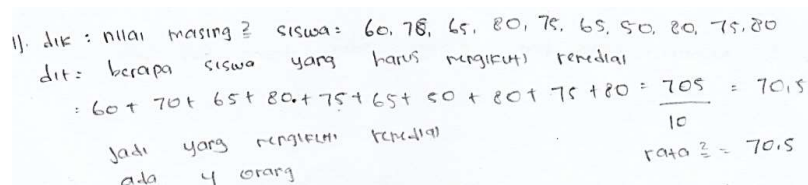 1). dik : nilai masing² siswa = 60, 78, 65, 80, 75, 65, 50, 80, 75, 80
dit = berapa siswa yang harus mengikuti remedial
: 60 + 70 + 65 + 80 + 75 + 65 + 50 + 80 + 75 + 80 = 705 / 10 = 70,5
Jadi yang mengikuti remedial rata² = 70.5
ada 4 orang